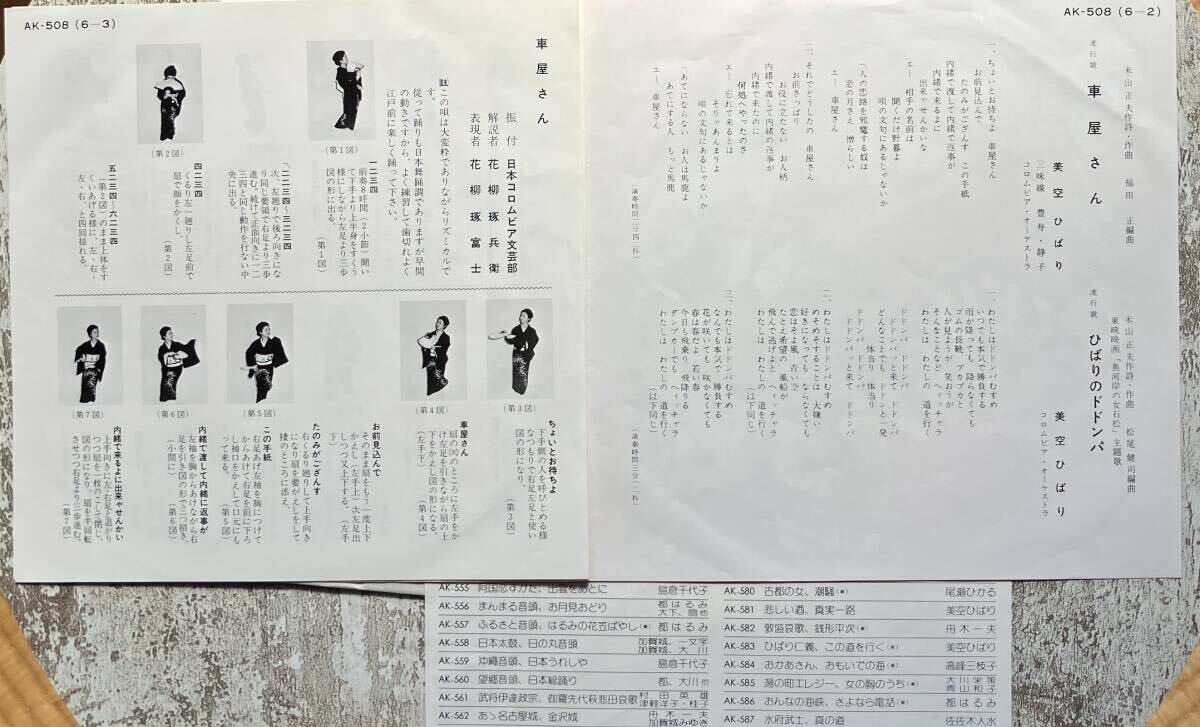 AK-508 (6—3)
車屋さん
振付 日本コロムビア文芸部
解説者 花柳琢兵衛
表現者 花柳琢富士
註この唄は大変粋でありながらリズミカルで
す。
従って踊りも日本舞踊調でありますが早間
の動きですから、よく練習して歯切れよく
江戸前に楽しく踊って下さい。
(第1図)
一二三四
前奏8呼間(2小節)聞い
て下手より上半身をすくう
様にしながら左足より三歩
図の形に出る。
(第1図)
二二三四~三二三四
次、左廻りで後ろ向きにな
り同じ要領で右足より三歩
進む。続けて正面向きに一二
三四と同じ動作を行ない中
央に出る。
(第2図)
四二三四
くるり左一廻りし左足前で
扇で顔をかくし。
(第2図)
五二三四~六二三四
(第2図)のまま上体をす
くいあげる様に、左・右・
左・右、と四回揺れる。
(第3図)
(第4図)
(第5図)
(第6図)
(第7図)
ちょいとお待ちよ
下手側の人を呼びとめる様
なつもりで右足左足と使い
図の形になり。
(第3図)
車屋さん
扇の(天)のところに左手をか
け左足を引きながら扇の上
下をかえし図の形になる。
(左手下)
(第4図)
お前見込んで
そのまま扇をもう一度上下
かえし(左手上)次左足出
しつつ又上下する。(左手
下)
たのみがござんす
右くるり廻りして上手向き
になり扇を要がえしをして
棲のところに添え、
この手紙
右足あげ左袖を胸につけて
からあけて右足を前に下ろ
し袖口をかえして口元にも
って来る。
(第5図)
内緒で渡して内緒に返事が
左袖を胸からあけながら右
足を引き図の形で三つ招き。
(小間に)
(第6図)
内緒で来るよに出来ゃせんかい
上手向きに左・右足と退がり
つつ扇を一枚のこして閉じ、
図の形になり。扇を半回転
させつつ右足より三歩進む。
(第7図)
AK-508 (6—2)
米山正夫作詩・作曲 福田 正編曲
流行歌 車屋さん
美空ひばり
三味線 豊寿・静子
コロムビア・オーケストラ
一、ちょいとお待ちよ 車屋さん
お前見込んで
たのみがござんす この手紙
内緒で渡して 内緒で返事が
内緒で来るよに
出来ゃせんかいな
エー 相手の名前は
聞くだけ野暮よ
唄の文句にあるじゃないか
「人の恋路を邪魔する奴は
恋の月さえ 憎らしい
エー 車屋さん
二、それでどうしたの 車屋さん
お前さっぱり
お役に立たない お人柄
内緒で渡して 内緒の返事が
内緒で来たのに
何処へやったのさ
エー 忘れて来るとは
そりゃあんまりよ
唄の文句にあるじゃないか
「あてにならない お人は馬鹿よ
あてにする人 もっと馬鹿
エー 車屋さん
(演奏時間二分四二秒)
米山正夫作詩・作曲 松尾健司編曲
東映映画「魚河岸の女石松」主題歌
流行歌 ひばりのドドンパ
美空ひばり
コロムビア・オーケストラ
一、わたしはドドンパむすめ
いつでも本気で 勝負する
雨が降っても 降らなくても
ゴムの長靴 ブカブカと
人が見ようが 笑おうが
そんなことなど ヘイッチャラ
わたしは わたしの 道を行く
ドドンパ ドドンパ
ドドンパッと来て ドドンパ
どんなことでも ドドンと一発
体当り 体当り
ドドンパ ドドンパ
ドドンパッと来て ドドンパ
二、わたしはドドンパむすめ
めそめそすることは 大嫌い
好きになっても ならなくても
恋はそよ風 青い空
たとえ希望の 風船が
飛んで逃げよと ヘイッチャラ
わたしは わたしの 道を行く
(以下同じ)
三、わたしはドドンパむすめ
なんでも本気で 勝負する
花が咲いても 咲かなくても
春は春だよ 若い春
今日も飛乗り 飛降りる
ダンプカーでも ヘイッチャラ
わたしは わたしの 道を行く
(以下同じ)
(演奏時間三分一二秒)
AK-555 阿国恋すがた、出雲をあとに 島倉千代子
AK-556 まんまる音頭、お月見おどり 都はるみ 大下、島他
AK-557 ふるさと音頭、はるみの花笠ばやし(■) 都はるみ
AK-558 日本太鼓、日の丸音頭 加賀城、一文字 加賀城、大川
AK-559 沖縄音頭、日本うれしや 島倉千代子
AK-560 望郷音頭、日本総踊り 都、大川他
AK-561 武将伊達政宗、伽羅先代萩悲田哀歌 村田英雄 津軽洋子・桂子
AK-562 あゝ名古屋城、金沢城 舟木一夫 加賀城みゆき
AK-580 古都の女、潮騒(■) 尾瀬ひかる
AK-581 悲しい酒、真実一路 美空ひばり
AK-582 敦盛哀歌、銭形平次(■) 舟木一夫
AK-583 ひばり仁義、この道を行く(■) 美空ひばり
AK-584 おかあさん、おもいでの海(■) 高峰三枝子
AK-585 湯の町エレジー、女の胸のうち(■) 大川栄策 青山和子
AK-586 おんなの海峡、さよなら電話(■) 都はるみ
AK-587 水府武士、真の道 佐佐木人水